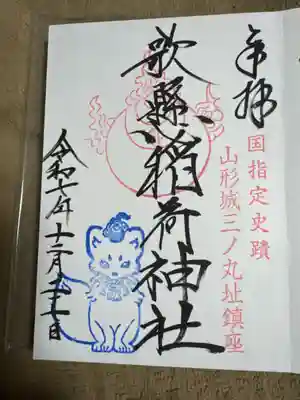 奉拝
国指定史蹟
山形城三ノ丸址鎮座
歌懸稲荷神社
令和七年十二月二十七日